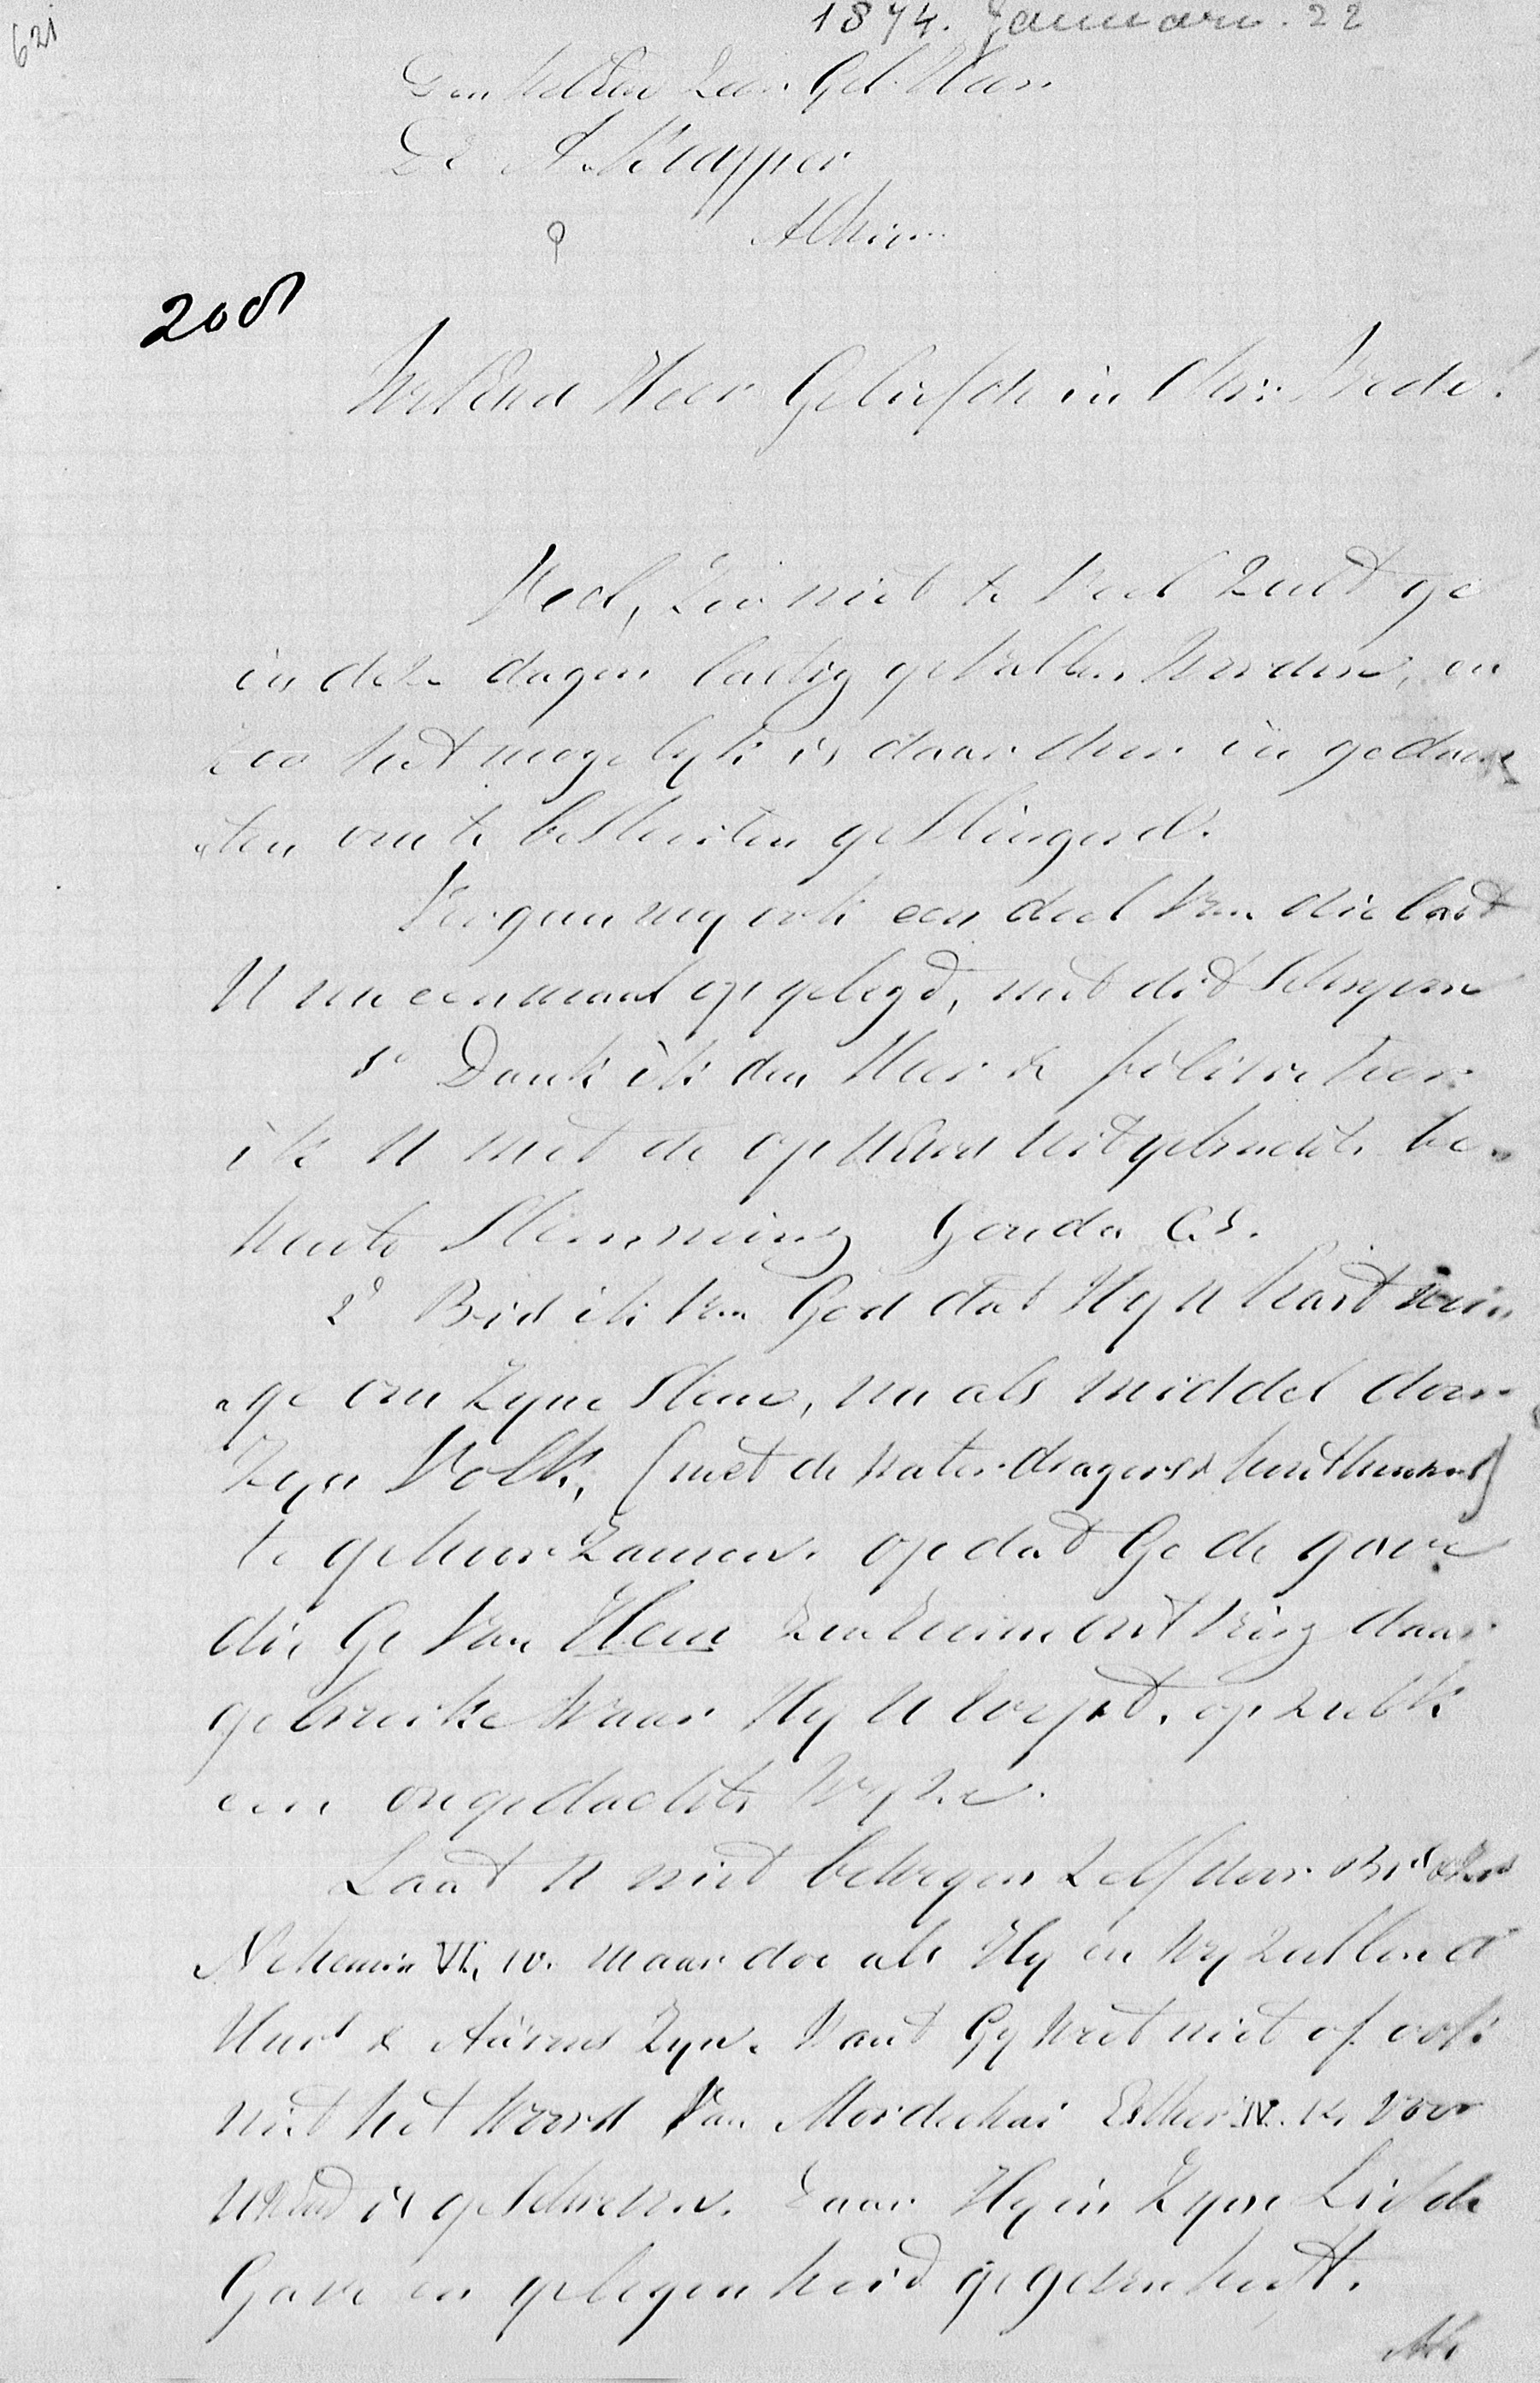 621
1874. Januari. 22
Den WelEerw Zeer Gel. Heer
Dr A. Kuyper
Alhier
200
WelEerw Heer Geliefde in Chr: Vrede!
Veel, Zoo niet te Veel Zult ge
in deze dagen lastig gevallen Worden, en
Zoo het mogelyk is daar door in gedach
"ten om te besluiten geslingerd.
Vergun my ook een deel Van die last
U nu eenmaal opgelegd, met dit Schryven
1o Dank ik den Heer & feliciteer
ik U met de op UEerw uitgebrachte be-
Keuste Stemming Gouda C.S.
2o Bid ik Van God dat Hy U hart nei
"ge om Zyne Stem, nu als middel door
Zyn Volk, (met de waterdragers & houthouwers)
te gehoorzamen. opdat Ge de gave
die Ge Van Hem ontving daar
gebruike Waar Hy U roept. op zulk
een ongedachte Wyze.
Laat U niet bewegen Zelf door
Nehemia VI, 10. maar doe als Hy en Wy Zullen U
Hur & Aärons Zyn. Want Gy Weet niet of ook
niet het Woord Van Mordechai Esther IV. 14 Voor
UEerw is geschreven. Daar Hy in Zyne Liefde
Gave en gelegenheid gegeven heeft.